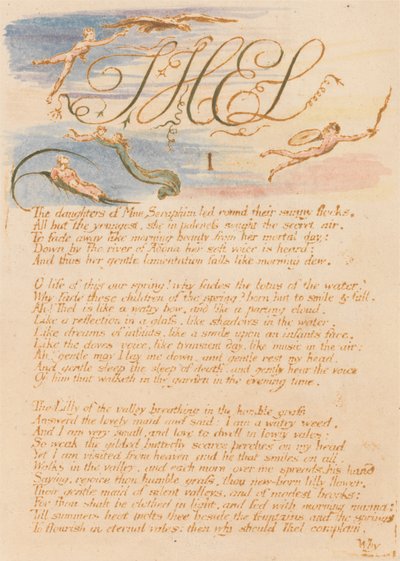 THEL
I
The daughters of Mne Seraphim led round their sunny flocks.
All but the youngest, she in paleness sought the secret air.
To fade away like morning beauty from her mortal day:
Down by the river of Adona her soft voice is heard:
And thus her gentle lamentation falls like morning dew.
O life of this our spring! why fades the lotus of the water?
Why fade these children of the spring? born but to smile & fall.
Ah! Thel is like a watry bow, and like a parting cloud.
Like a reflection in a glass. like shadows in the water.
Like dreams of infants, like a smile upon an infants face,
Like the doves voice, like transient day, like music in the air:
Ah! gentle may I lay me down, and gentle rest my head.
And gentle sleep the sleep of death. and gently hear the voice
Of him that walketh in the garden in the evening time.
The Lilly of the valley breathing in the humble grass
Answerd the lovely maid and said: I am a watry weed,
And I am very small, and love to dwell in lowly vales:
So weak the gilded butterfly scarce perches on my head
Yet I am visited from heaven and he that smiles on all.
Walks in the valley. and each morn over me spreads his hand
Saying, rejoice thou humble grass, thou new-born lilly flower,
Thou gentle maid of silent valleys, and of modest brooks:
For thou shalt be clothed in light, and fed with morning manna:
Till summers heat melts thee beside the fountains and the springs
To flourish in eternal vales: then why should Thel complain,
Why